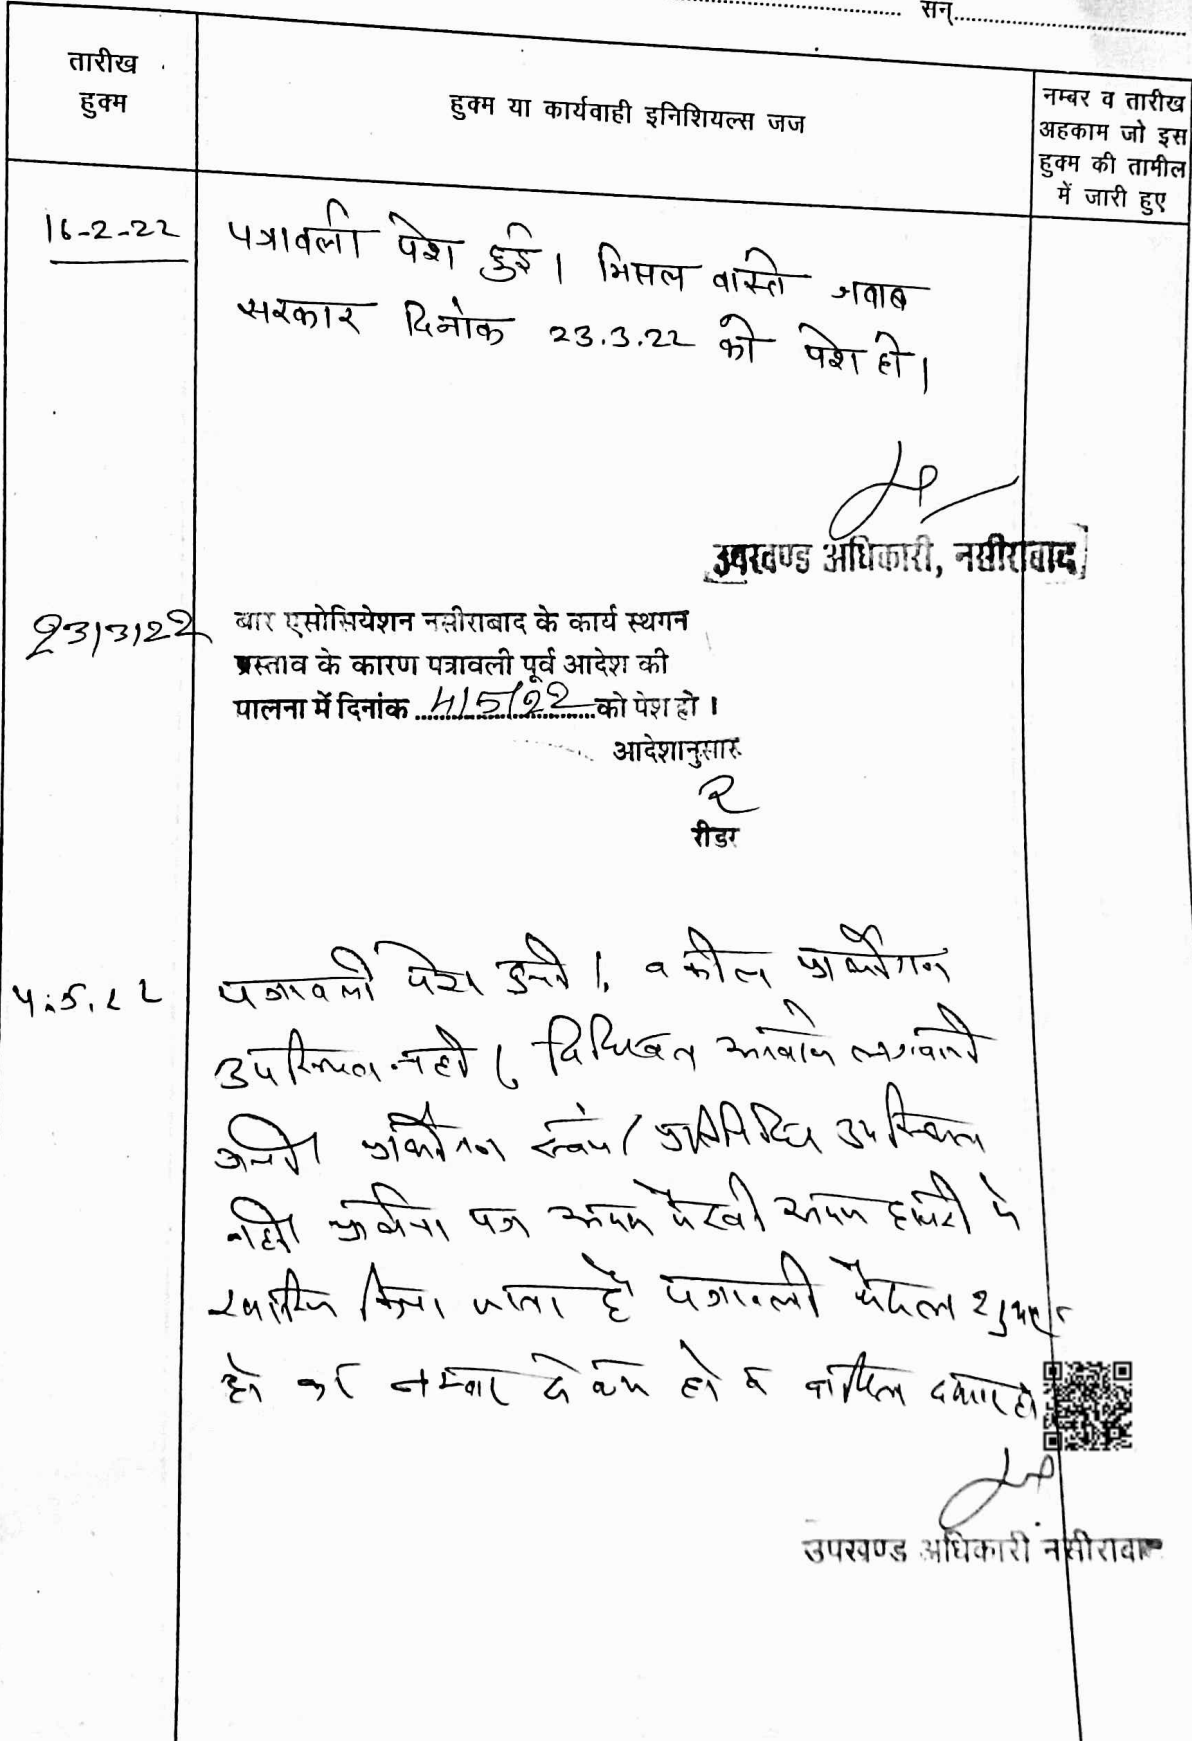 सन्
तारीख
हुक्म
हुक्म या कार्यवाही इनिशियल्स जज
नम्बर व तारीख
अहकाम जो इस
हुक्म की तामील
में जारी हुए
16-2-22
पत्रावली पेश हुई। मिसल वास्ते जवाब
सरकार दिनांक 23.3.22 को पेश हो।
उपखण्ड अधिकारी, नसीराबाद
23/3/22
बार एसोसियेशन नसीराबाद के कार्य स्थगन
प्रस्ताव के कारण पत्रावली पूर्व आदेश की
पालना में दिनांक 4/5/22 को पेश हो।
आदेशानुसार
रीडर
4.5.22
पत्रावली पेश हुई। वकील प्रार्थीगण
उपस्थित नहीं।
प्रार्थीगण स्वयं/प्रतिनिधि उपस्थित
नहीं प्रार्थना पत्र अदम पैरवी अदम हाजरी में
खारिज किया जाता है पत्रावली फैसल शुमार
हो कर नम्बर से कम हो व दाखिल दफ्तर हो
उपखण्ड अधिकारी नसीराबाद